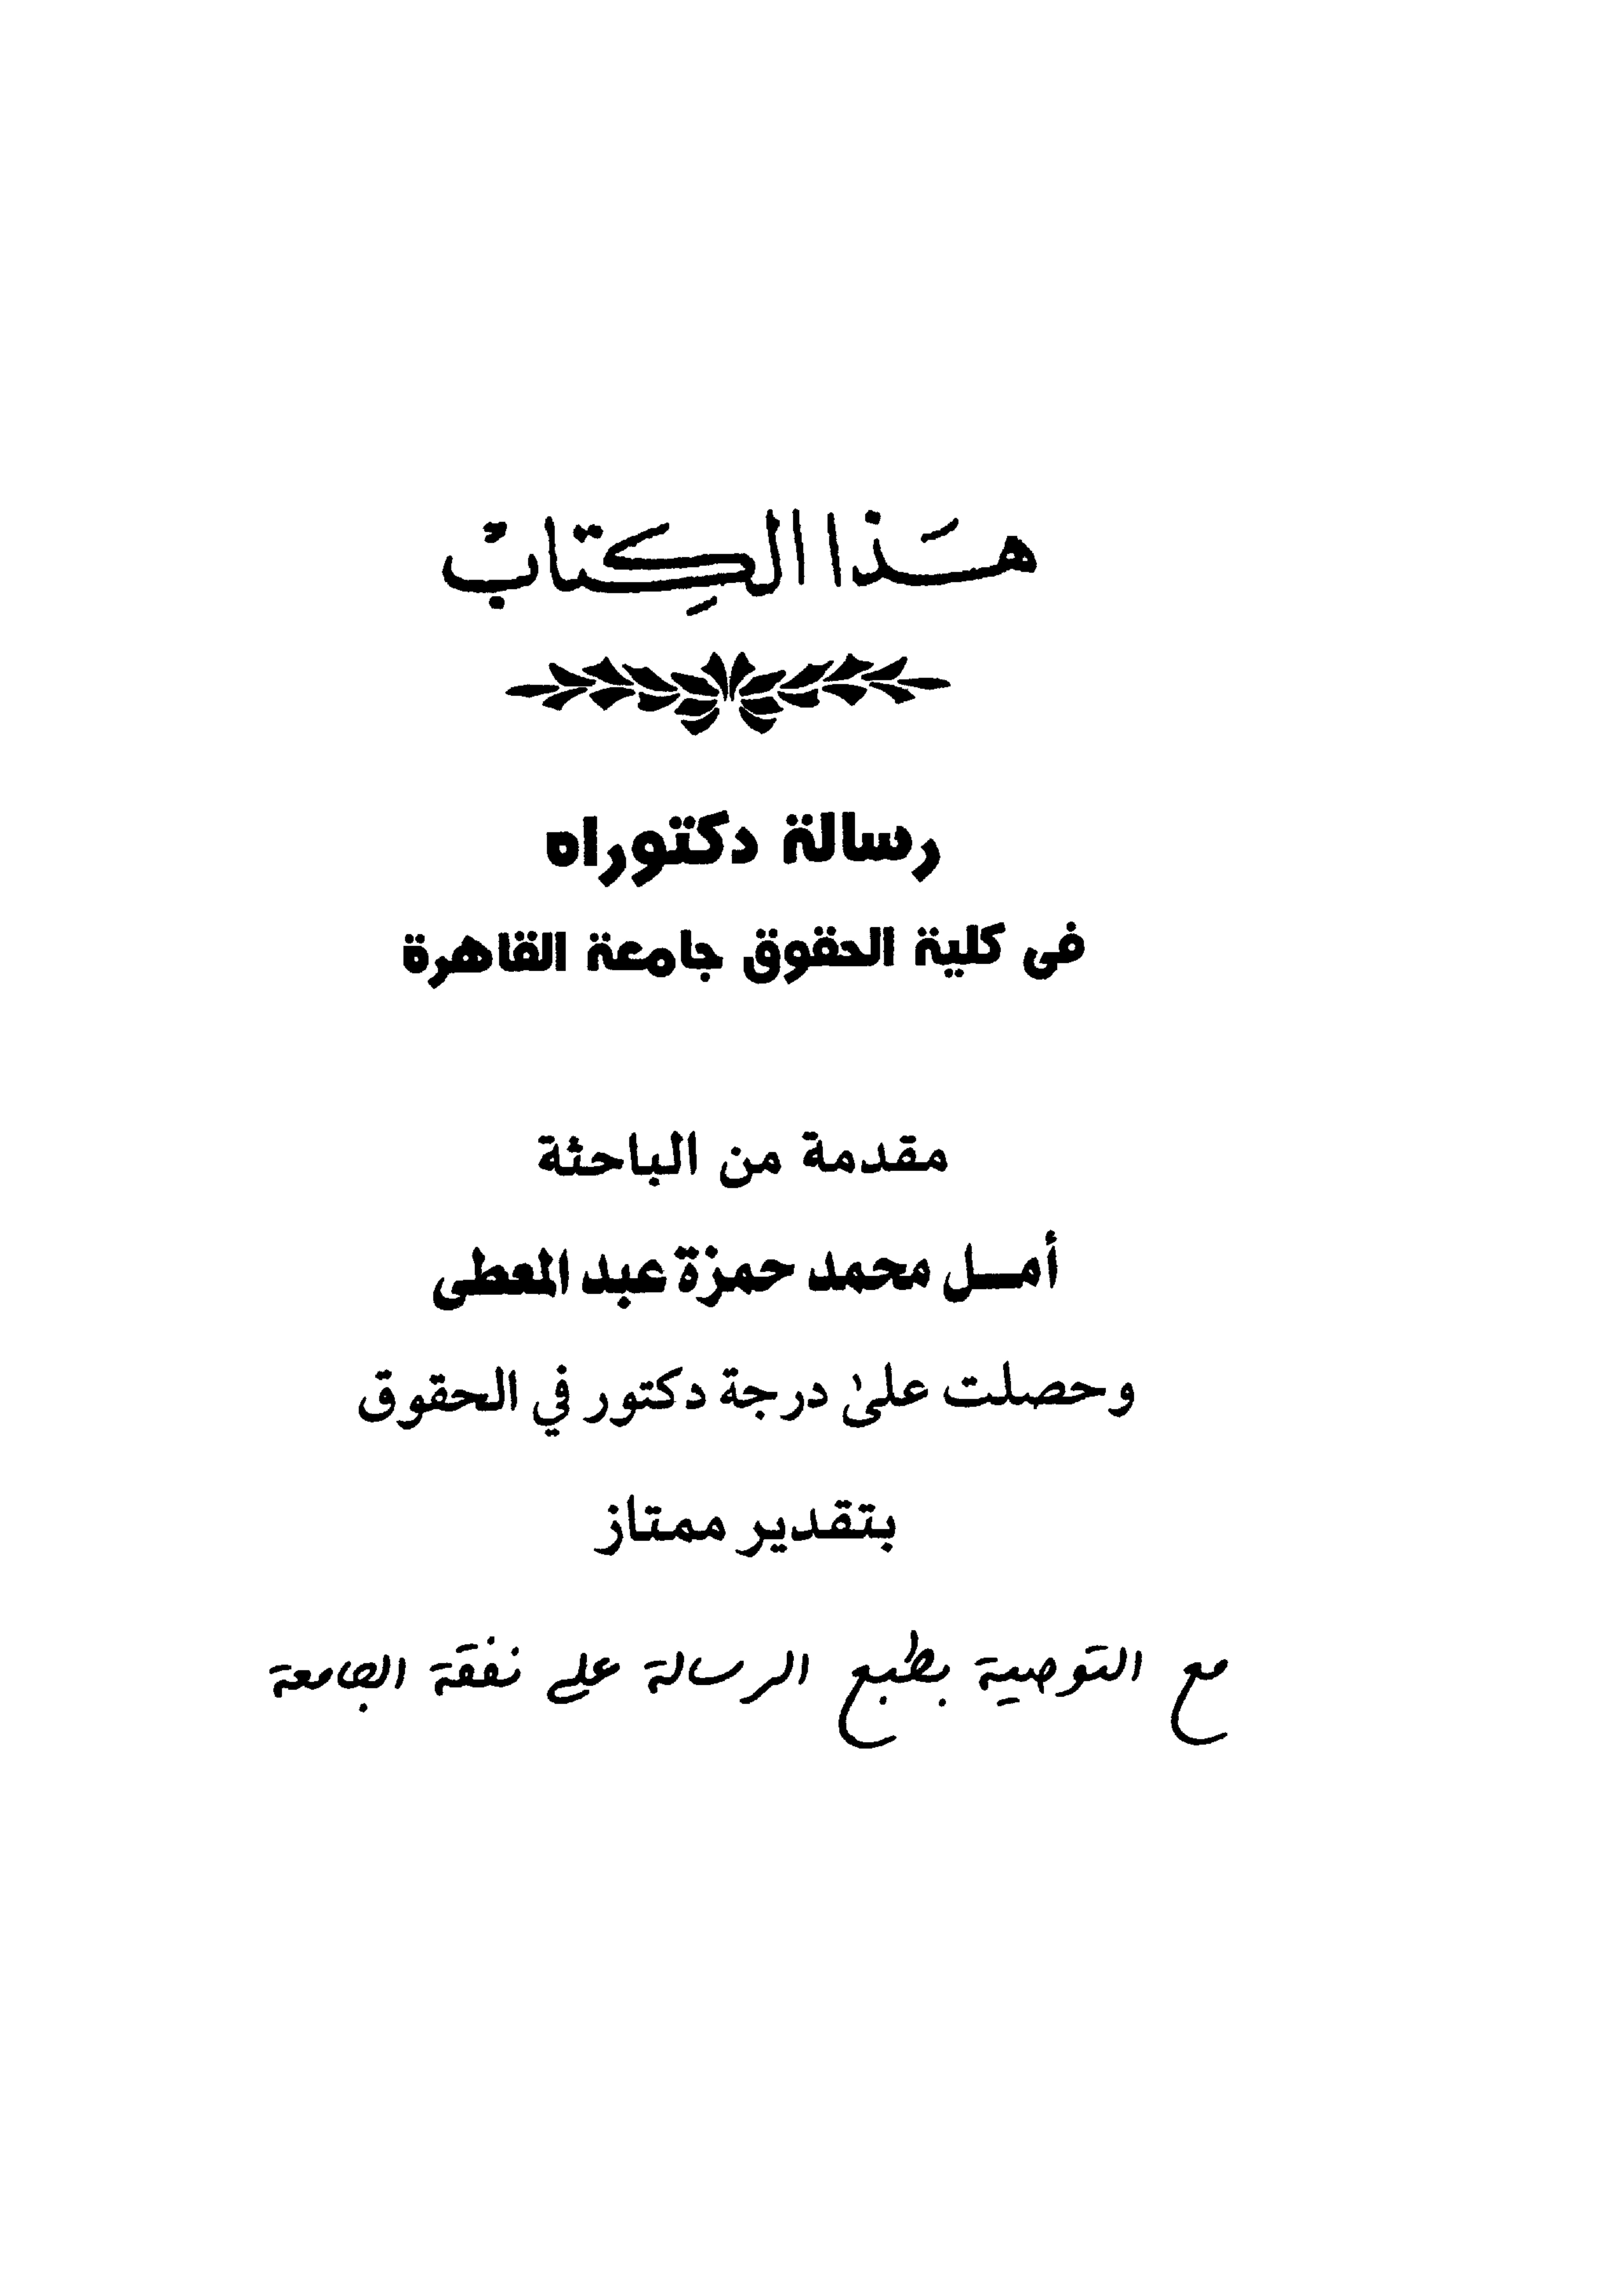 هَذَا الكِتَابْ
رسالة دكتوراه
فى كلية الحقوق جامعة القاهرة
مقدمة من الباحثة
أمــل محمد حمزة عبد المعطى
وحصلت على درجة دكتور في الحقوق
بتقدير ممتاز
مع التوصية بطبع الرسالة على نفقة الجامعة